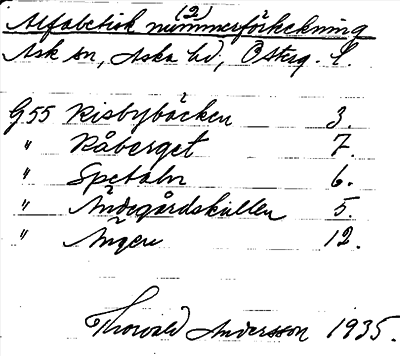 (2)
Alfabetisk nummerförteckning
Ask sn, Aska hd, Österg. l.
G55 Risbybäcken 3.
" Råberget 7.
" Spetaln 6.
" Ändegårdskullen 5.
" Ängen 12.
Thorvald Andersson 1935.